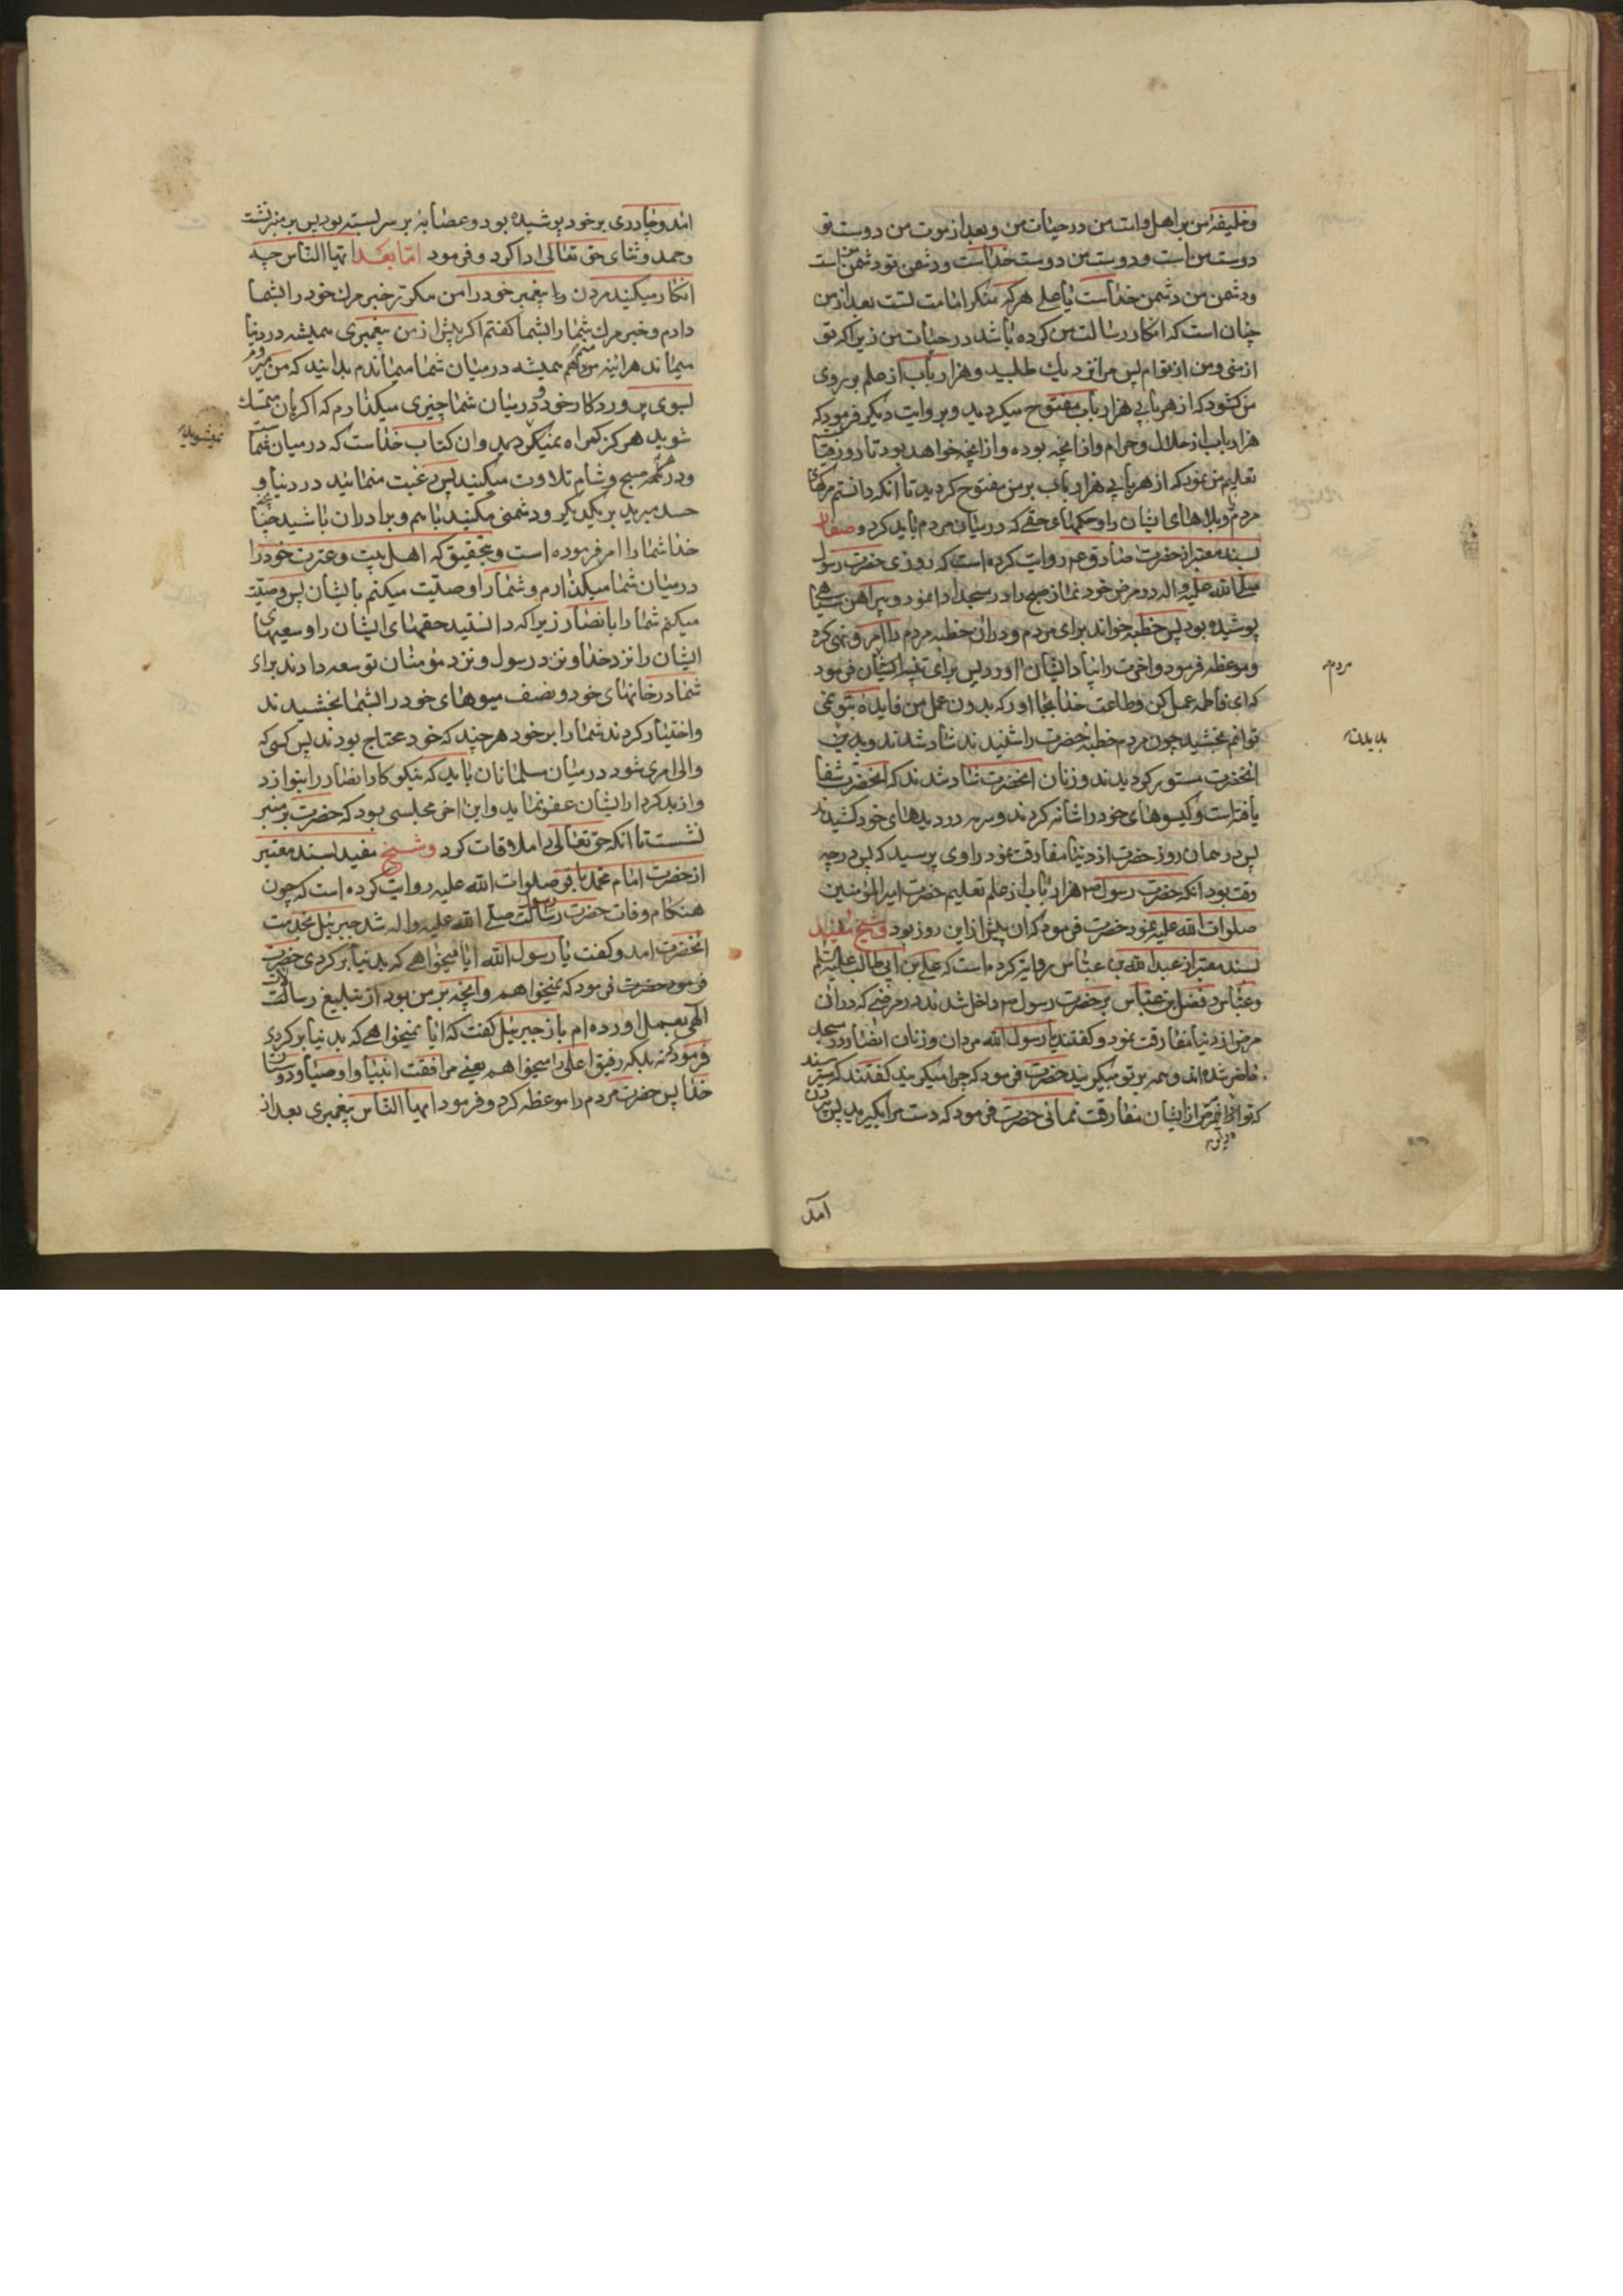 وخلیفهٔ من بر اهل و امت من در حیات من و بعد از موت من دوست تو
دوست من است و دوست من دوست خداست و دشمن تو دشمن من است
و دشمن من دشمن خداست یا علی هر که منکر امامت تست بعد از من
چنان است که انکار رسالت من کرده باشد در حیات من زیرا که تو
از منی و من از توام پس مرا نزدیک طلبید و هزار باب از علم بر روی
من کشود که از هر بابی هزار باب مفتوح میکردید و بروایت دیگر فرمود که
هزار باب از حلال و حرام و از انچه بوده و از انچه خواهد بود تا روز قیامت
تعلیم من نمود که از هر بابی هزار باب بر من مفتوح کردید تا آنکه دانستم مرکهای
مردم و بلاهای ایشان را و حکمهای حقی که در میان مردم باید کرد و صفار
بسند معتبر از حضرت صادق ع م روایت کرده است که روزی حضرت رسول
صلی الله علیه و اله در مرض خود نماز صبح را در مسجد ادا نمود و پیراهن سیاهی
پوشیده بود پس خطبه خواند برای مردم و در ان خطبه مردم را امر و نهی کرد
و موعظه فرمود و اخرت را بیاد ایشان اورد پس برای فرمود
مردم
که ای فاطمه عمل کن و طاعت خدا بجا اور که بدون عمل من فایده بتو نمی
توانم بخشید چون مردم خطبه حضرت را شنیدند شاد شدند و بدیدن
بدیدن
انحضرت مسرور کردیدند و زنان انحضرت شاد شدند که انحضرت شفا
یافته است و کیسوهای خود را شانه کردند و سرمه در دیدهای خود کشیدند
پس در همان روز حضرت از دنیا مفارقت نمود راوی پرسید که پس در چه
وقت بود انکه حضرت رسول ص هزار باب از علم تعلیم حضرت امیر المؤمنین
صلوات الله علیه نمود حضرت فرمود که ان پیش از این روز بود و شیخ مفید
بسند معتبر از عبد الله بن عباس روایت کرده است که علی بن ابی طالب علیه السلام
و عباس و فضل بن عباس بر حضرت رسول ص داخل شدند در مرضی که در ان
مرض از دنیا مفارقت نمود و کفتند یا رسول الله مردان و زنان انصار در مسجد
حاضر شده اند و همه بر تو میکریند حضرت فرمود که چرا میکریند کفتند که میترسند
که تو از ایشان مفارقت نمائی حضرت فرمود که دست مرا بکیرید پس بیرون
آمد
امد و چادری بر خود پوشیده بود و عصابهٔ بر سر بسته بود پس بر منبر نشست
و حمد و ثنای حق تعالی ادا کرد و فرمود اما بعد ایها الناس چه
انکار میکنید مردن پیغمبر خود را من مکرر خبر مرك خود را بشما
دادم و خبر مرك شما را بشما کفتم اکر پیش از من پیغمبری همیشه در دنیا
میماند هراینه من هم همیشه در میان شما میماندم بدانید که من میروم
بسوی پروردکار خود و در میان شما چیزی میکذارم که اکر بان متمسك
شوید هرکز کمراه نمیکردید و ان کتاب خداست که در میان شماست
نمیشوید
و در هر صبح و شام تلاوت میکنید پس رغبت منمائید در دنیا و
حسد مبرید بر یکدیکر و دشمنی مکنید با هم و برادران باشید چنانچه
خدا شما را امر فرموده است و بتحقیق که اهل بیت و عترت خود را
در میان شما میکذارم و شما را وصیت میکنم بایشان پس وصیت
میکنم شما را بانصار زیرا که دانستید حقهای ایشان را و سعیهای
ایشان را نزد خدا و نزد رسول و نزد مؤمنان توسعه دادند برای
شما در خانهای خود و نصف میوهای خود را بشما بخشیدند
و اختیار کردند شما را بر خود هر چند که خود محتاج بودند پس کسی که
والی امری شود در میان مسلمانان باید که نیکوکار انصار را بنوازد
و از بدکردار ایشان عفو نماید و این اخر مجلسی بود که حضرت بر منبر
نشست تا انکه حق تعالی را ملاقات کرد و شیخ مفید بسند معتبر
از حضرت امام محمد باقر صلوات الله علیه روایت کرده است که چون
هنکام وفات حضرت رسالت صلی الله علیه و اله شد جبرئیل بخدمت
انحضرت امد و کفت یا رسول الله ایا میخواهی که بدنیا برکردی حضرت
فرمود که نمیخواهم و انچه بر من بود از تبلیغ رسالت
الهی بعمل اورده ام باز جبرئیل کفت که ایا نمیخواهی که بدنیا برکردی
فرمود که نه بلکه رفیق اعلی را میخواهم یعنی مرافقت انبیا و اوصیا و دوستان
خدا پس حضرت مردم را موعظه کرد و فرمود ایها الناس پیغمبری بعد از